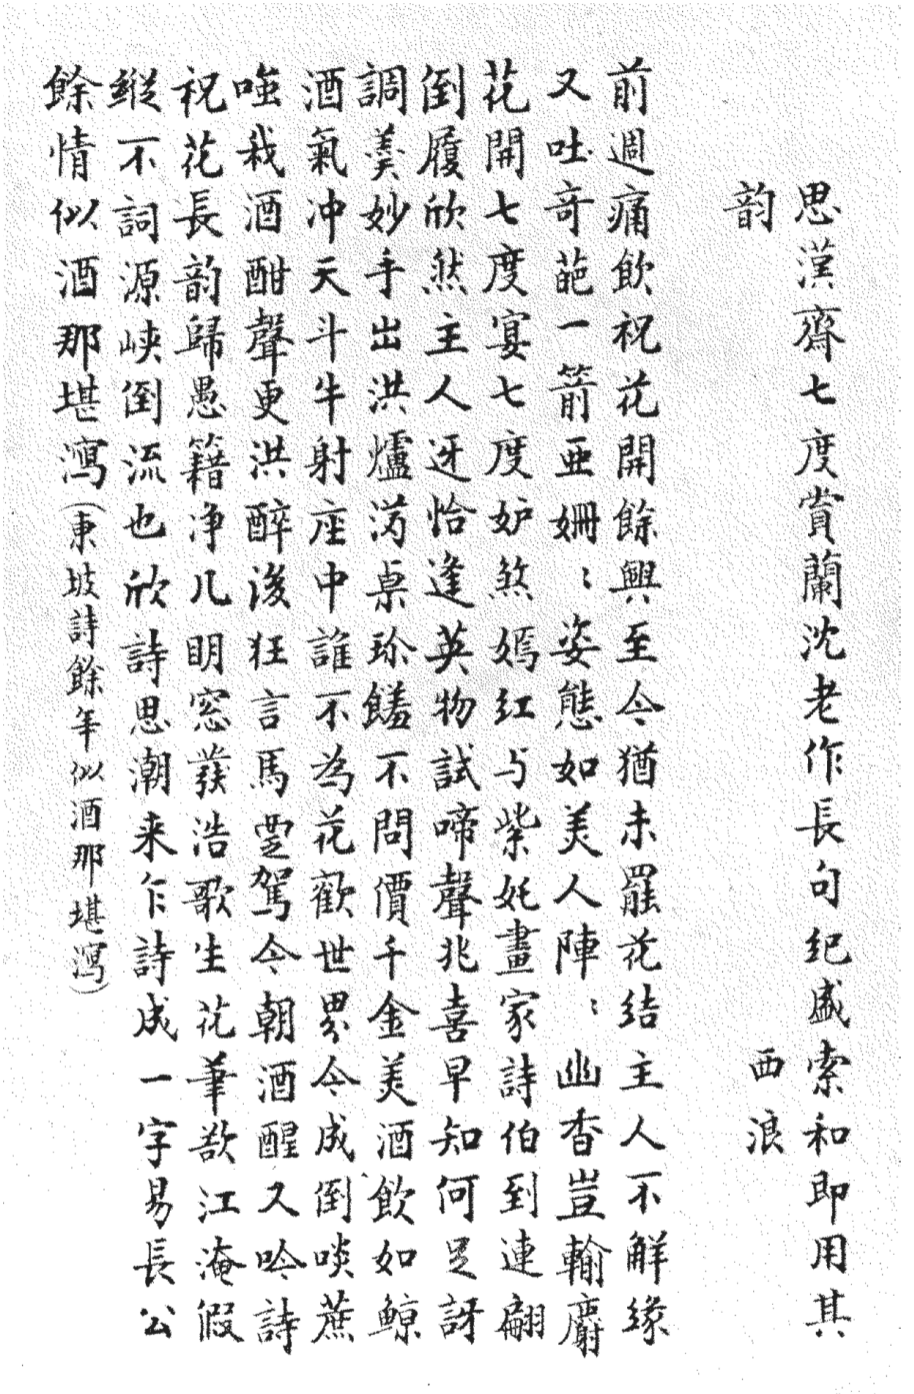 思漢齋七度賞蘭沈老作長句紀盛索和即用其
韵　西浪
前週痛飲祝花開餘興至今猶未罷花結主人不解緣
又吐奇葩一箭亜姍：姿態如美人陣：幽香豈輸麝
花開七度宴七度妒煞嫣紅与紫奼畫家詩伯到連翩
倒履欣然主人迓恰逢英物試啼聲兆喜早知何足訝
調羮妙手出洪爐满桌珍饈不問價千金美酒飲如鲸
酒氣冲天斗牛射座中誰不為花歡世界今成倒啖蔗
嗤我酒酣聲更洪醉後狂言馬耍駕今朝酒醒又吟詩
祝花長韵歸愚籍净几明窓發浩歌生花筆欲江淹假
縱不詞源峽倒流也欣詩思潮来乍詩成一字易長公
餘情似酒那堪瀉（東坡詩餘年似酒那堪瀉）